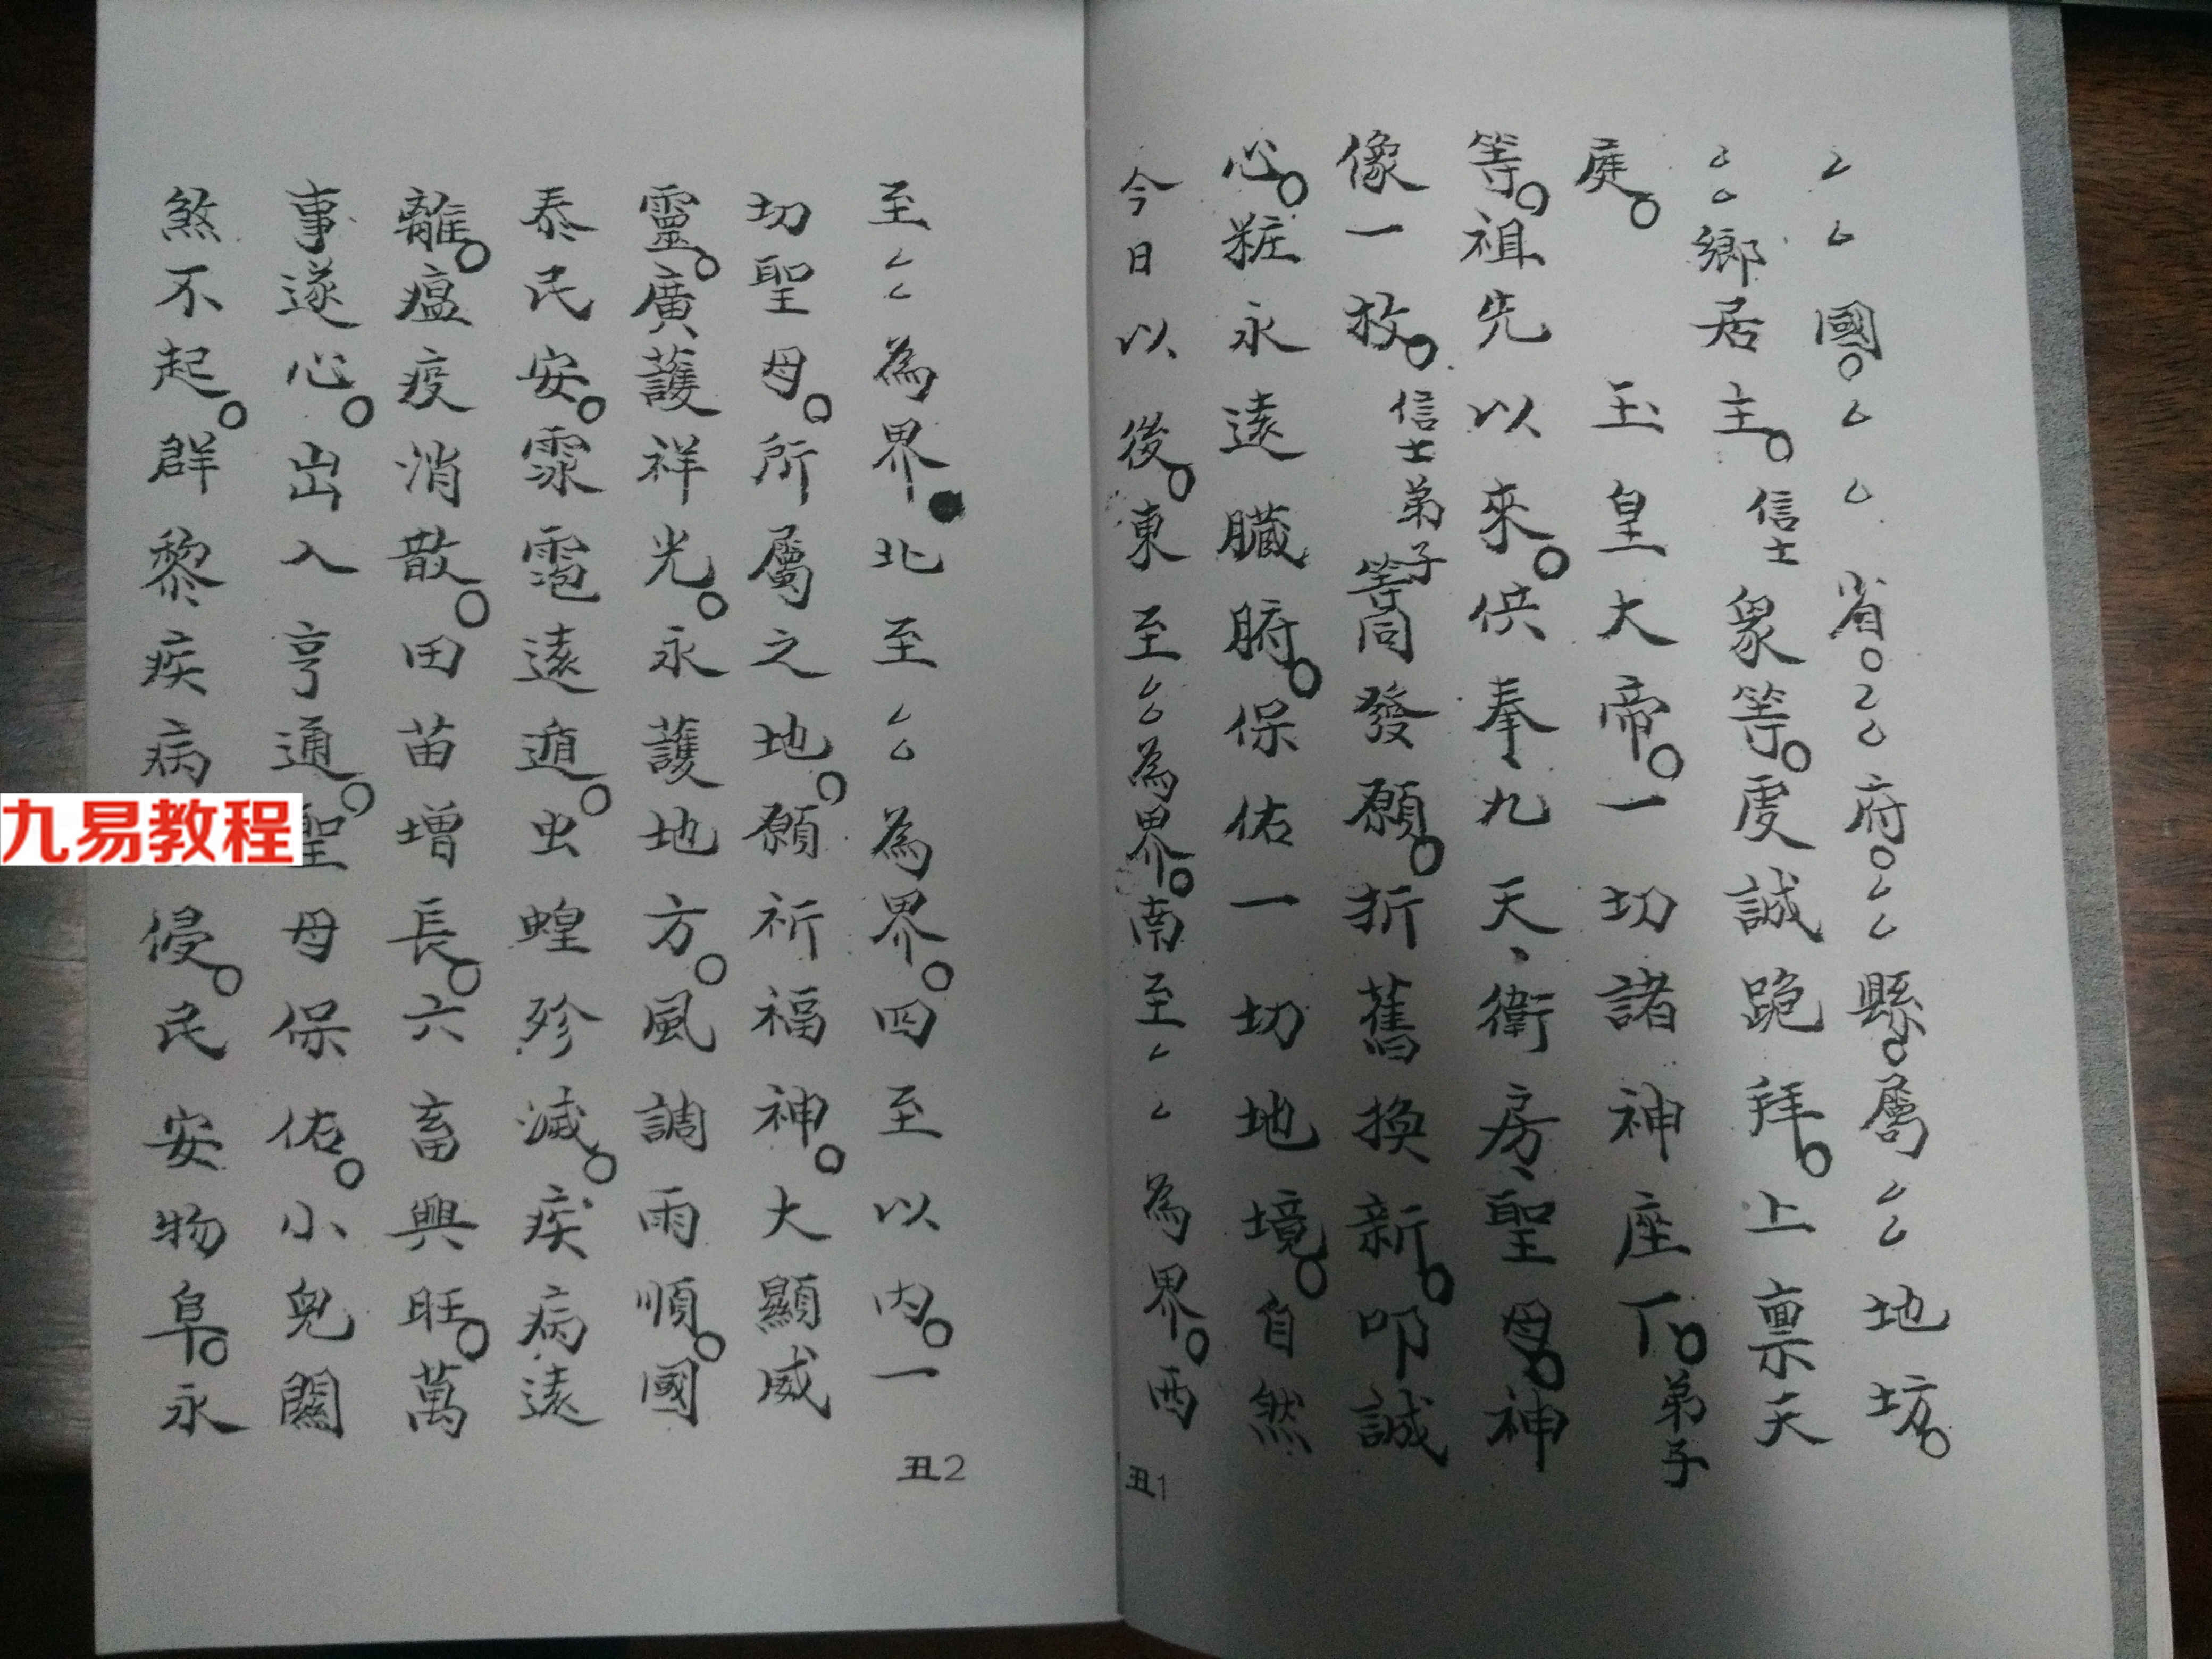 厶厶國。厶厶省。厶厶府。厶厶縣。屬厶厶地坊。
厶厶鄉居主。信士眾等。虔誠跪拜。上禀天
庭。
玉皇大帝。一切諸神座下。弟子
等。祖先以來。供奉、九天、衛房、聖母。神
像一枚。信士弟子等同發願。折舊換新。叩誠
心。粧永遠臟腑。保佑一切地境。自然
今日以後。東至厶厶為界。南至厶厶為界。西
丑1
至厶厶為界。北至厶厶為界。四至以内。一
切聖母。所屬之地。願祈福神。大顯威
靈。廣護祥光。永護地方。風調雨順。國
泰民安。雹遠遁。虫蝗殄滅。疾病遠
離。瘟疫消散。田苗增長。六畜興旺。萬
事遂心。出入亨通。聖母保佑。小兒關
煞不起。群黎疾病侵。民安物阜。永
丑2
九易教程